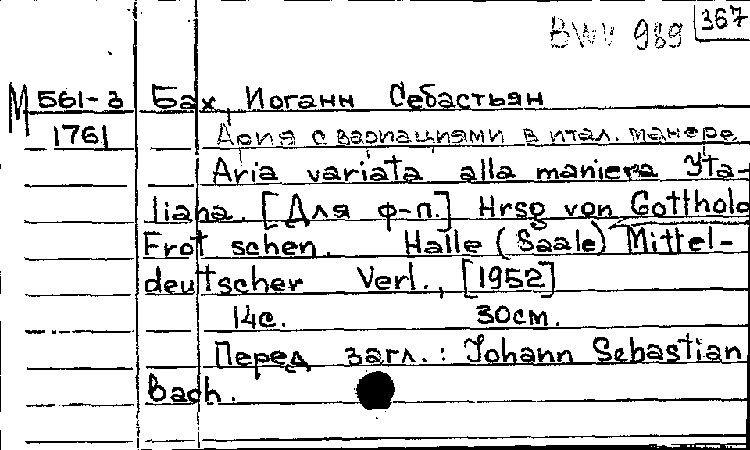 BWV 989 367
М 561-3 Бах, Иоганн Себастьян
1761 Ария с вариациями в итал. манере
Aria variata alla maniera Ita-
liana. [Для ф-п.] Hrsg von Gotthold
Frotschen. Halle (Saale) Mittel-
deutscher Verl., [1952]
14с. 30см.
Перед загл.: Johann Sebastian
Bach.